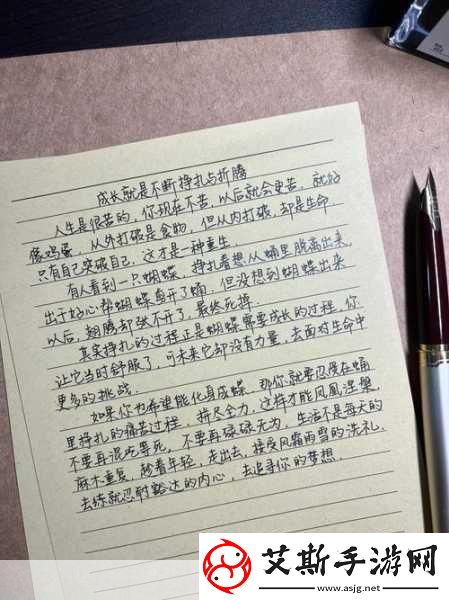 成长就是不断挣扎与折腾
人生是很苦的，你现在不苦，以后就会更苦。就好
像鸡蛋，从外打破是食物，但从内打破，却是生命
只有自己突破自己，这才是一种重生。
有人看到一只蝴蝶，挣扎着想从蛹里脱离出来，
出于好心帮蝴蝶剪开了蛹，但没想到蝴蝶出来
以后，翅膀却张不开了，最终死掉。
其实挣扎的过程正是蝴蝶需要成长的过程，你
让它当时舒服了，可未来它却没有力量，去面对生命中
更多的挑战。
如果你也希望能化身成蝶，那你就要忍受在蛹
里挣扎的痛苦过程，拼尽全力，这样才能凤凰涅槃，
不要再混吃等死，不要再碌碌无为，生活不是每天的
麻木重复，趁着年轻，走出去，接受风霜雨雪的洗礼，
去练就忍耐豁达的内心，去追寻你的梦想。
艾斯手游网
www.asjg.net